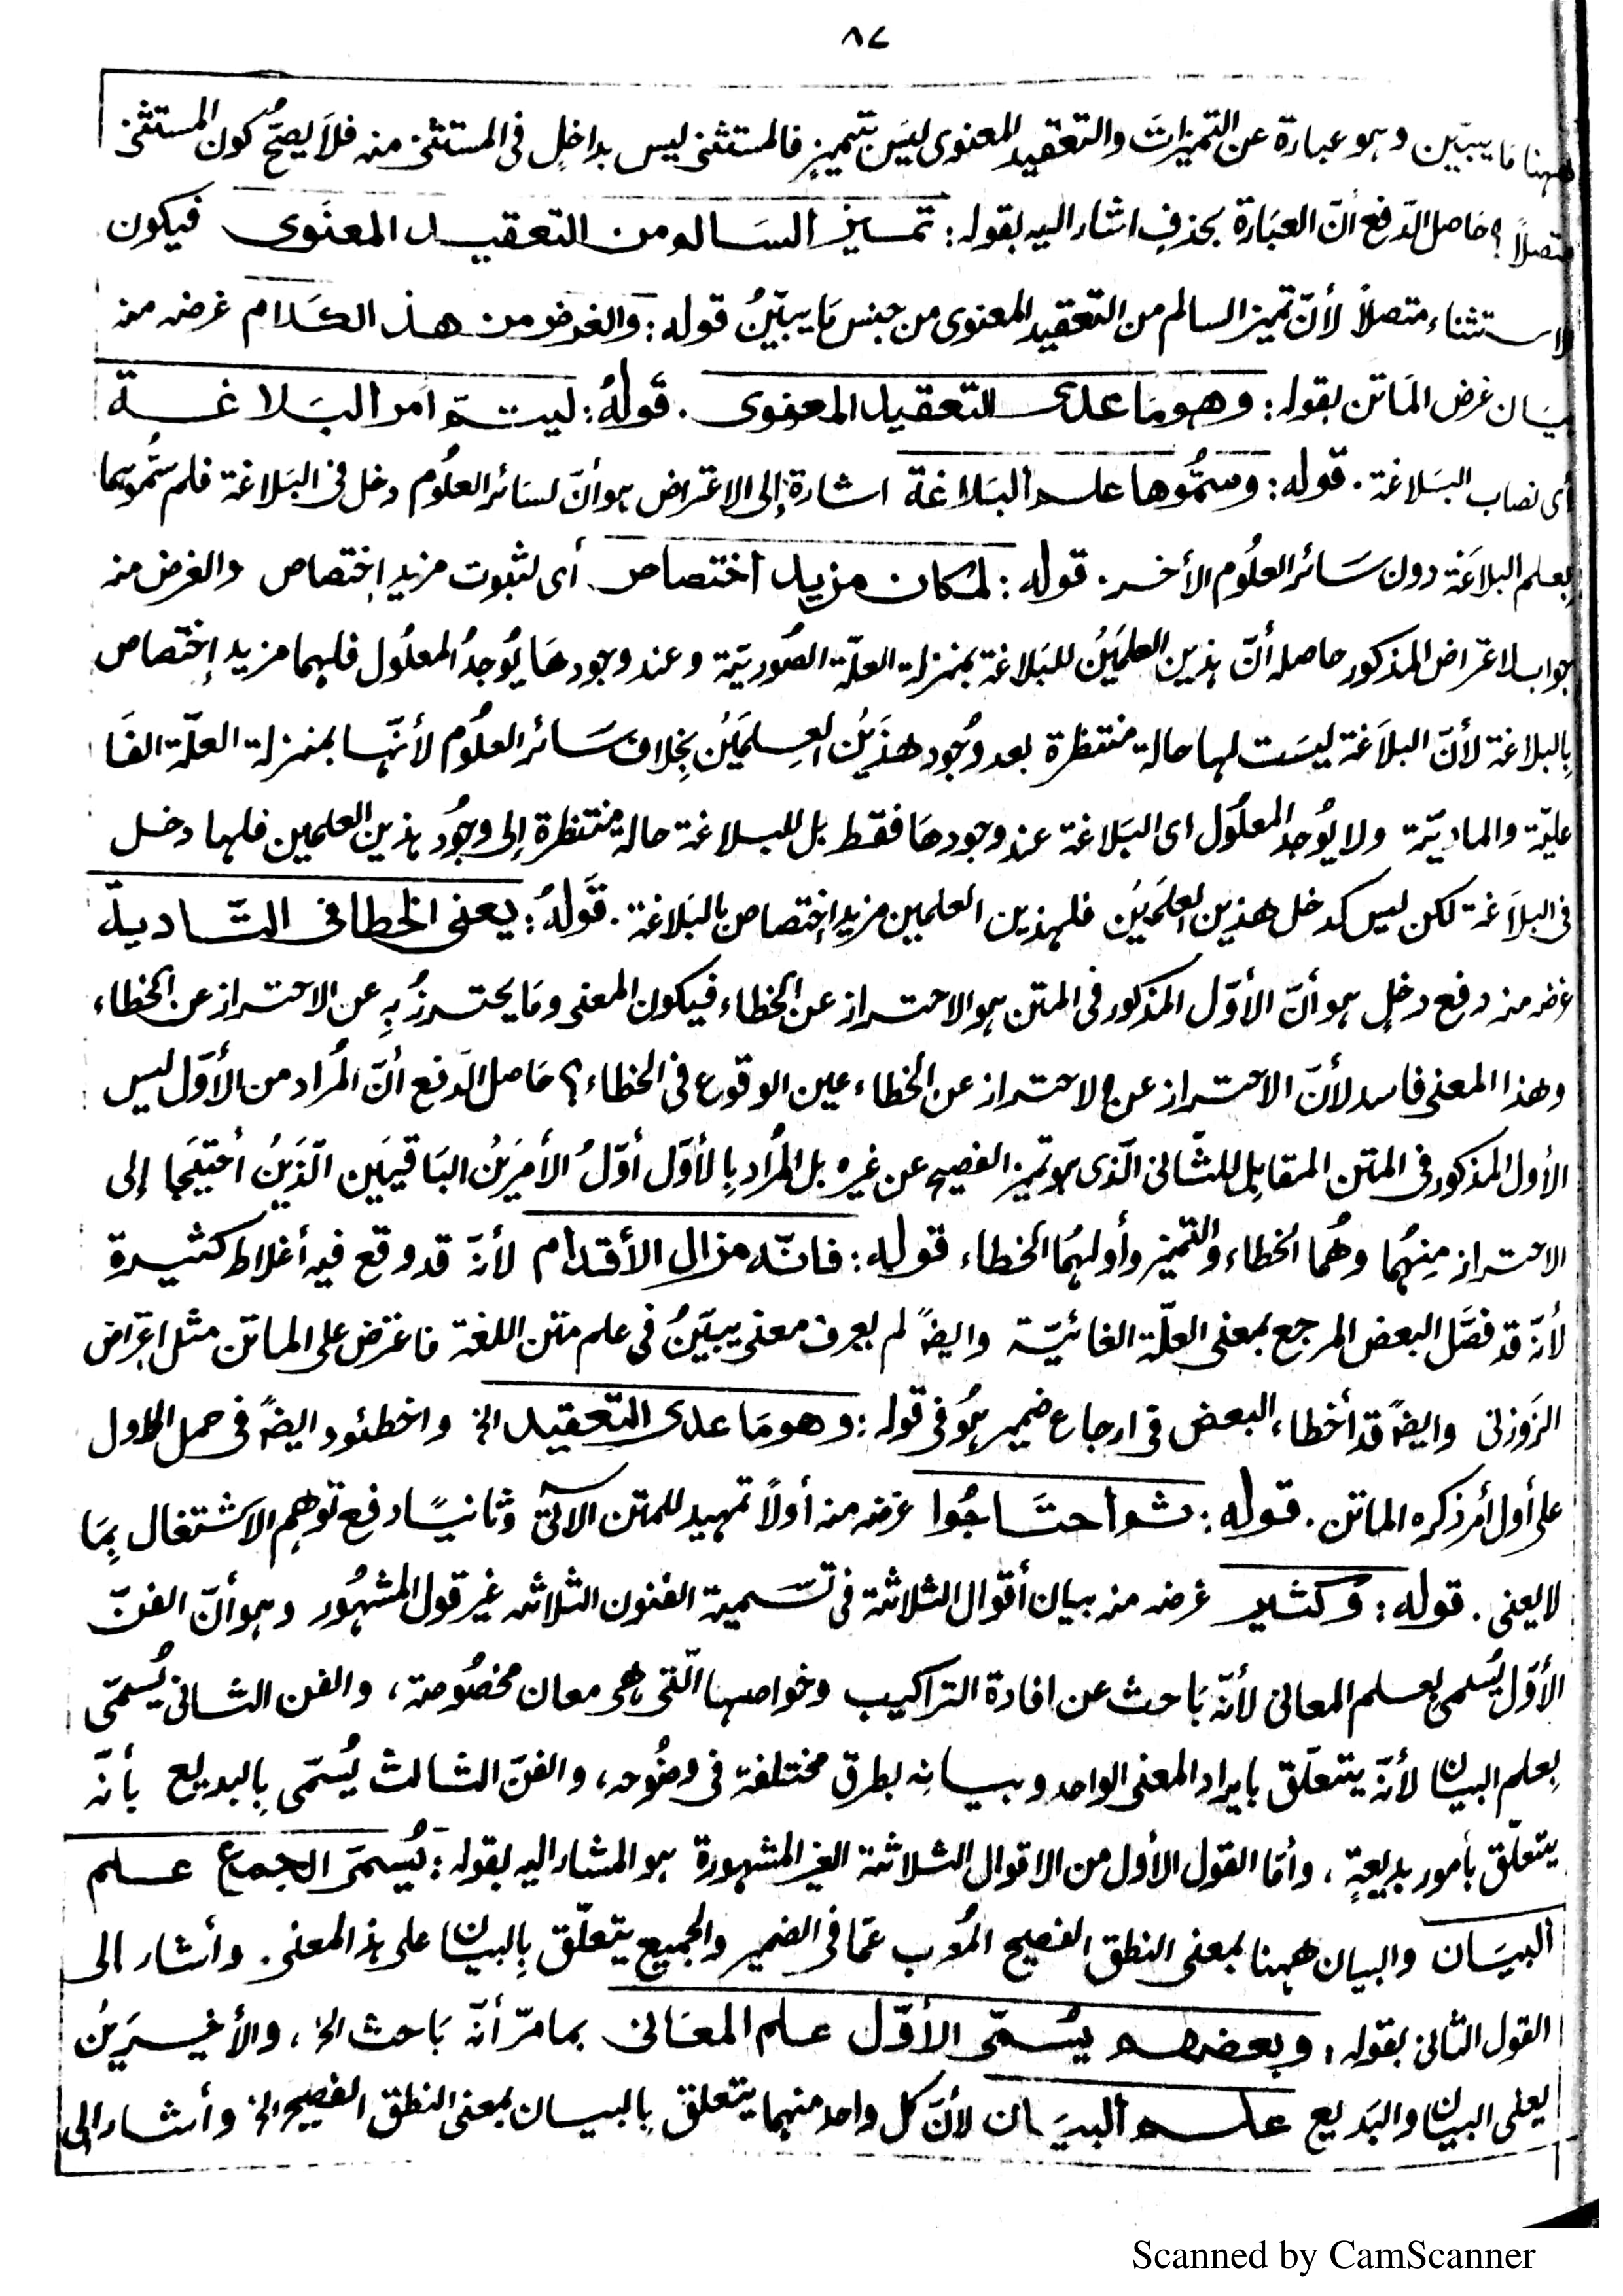 ٨٧
ههنا مَا يبيّن وہو عبارة عن التميزاتَ والتعقيد المعنوى ليسَ بتميزٍ فالمستثنىٰ ليس بداخلٍ فى المستثنىٰ منه فلاَ يصحّ كون المستثنىٰ
متصلاً؟ حاصل الدّفع أنّ العبَارة بحذفٍ اشار اليه بقوله: تمسيز السَالم من التعقيد المعنَوى فيكون
الاستثناء متصلاً لأنّ تميز السالم من التّعقيد المعنوى من جنس مَا يبيّنُ قوله: والغرض من هذ الكَلام غرضه منه
بيَان غرض المَاتن بقوله: وهو مَا عدى التعقيد المعنوى. قَولهُ: ليتمّ أمر البَلاغة
أى نصاب البَلاغة. قوله: وسمُّوها علم البَلاغة اشارة إلى الاعتراض ہو أنّ لسَائر العلُوم دخل فى البَلاغة فلم سمُّوہما
بعلم البلاغَة دون سَائر العلُوم الأخر. قوله: لمكان مزيد اختصاص أى لثبوت مزيد إختصاص والغرض منه
جواب الاعتراض المذكور حاصله أنّ ہذين العلمَيْن للبَلاغة بمنزلة العلّة الصُوريّة وعند وجودهَا يُوجدُ المعلُول فلہما مزيد إختصاص
بِالبلاغة لأنّ البلاَغة ليسَت لہا حالة منتظرة بعد وُجود هذَيْن العِلمَيْن بخِلاف سَائر العلُوم لأنّہا بمنزلة العلّة الفَا
عليّة والماديّة ولا يُوجد المعلُول اى البَلاغة عند وجودهَا فقط بل للبلاغة حالة منتظرة إلى وجُود ہذين العلمين فلہا دخل
فى البلاَغة لكن ليس كدخل هذين العلَميْن فلہذين العلمين مزيد إختصاص بالبَلاغة. قَولهُ: يعنى الخطا فى التّادية
غرضه منه دفع دخلٍ ہو أنّ الأوّل المذكور فى المتن ہو الاحتراز عن الخطاء فيكون المعنى ومَا يحترزُ بهٖ عن الاحتراز عن الخطاء
وهذا المعنى فاسد لأنّ الاحتراز عن الاحتراز عن الخطاء عين الوقوع فى الخطاء؟ حَاصل الّدفع أنّ المُراد من الأوّل ليس
الأول المذكور فى المتن المقابِل للثّانى الّذى ہو تميز الفصيح عن غيره بل المُراد بِالأوّل أوّلُ الأمرَيْن البَاقيَين الّذَيْن أحتيجَا إلى
الاحتراز مِنہُما وهُما الخطاء والتميز وأولہمُا الخطاء قوله: فانّه مزال الأقدام لأنّه قد وقع فيه أغلاط كثيرة
لأنّه قد فسَّر البعض المرجع بمعنى العلّة الغائيّة وايضًا لم يعرف معنى يبيّنُ فى علم متن اللغة فاعترض على الماتن مثل اعتراض
الزَوزنى وايضًا قد أخطاء البعض فى ارجاع ضمير ہُو فى قوله: وهو مَا عدى التعقيد الخ واخطئود ايضًا فى حمل الاول
على أول أمر ذكره الماتن. قوله: ثم أحتَاجُوا غرضه منه أولاً تمہيد للمتن الآتى وثانيًا دفع توهم الاشتغال بِمَا
لا يعنى. قوله: وكثير غرضه منه بيان أقوال الثلاثة فى تسّمية الفنون الثلاثه غير قول المشہُور وہو أنّ الفنّ
الأوّل يُسمى بعلم المعانى لأنّه بَاحث عن افادة التراكيب وخواصہا الّتى هى معان مخصُوصة، والفن الثانى يُسمّى
بِعلم البيان لأنّه يتعلّق بايراد المعنى الواحد وبيانه بطرق مختلفة فى وضُوحه، والفنّ الثالث يُسمّى بِالبديع بأنّه
يتعلّق بأمور بديعةٍ، وأمّا القول الأول من الاقوال الثلاثة الغير المشہورة ہو المشار اليه بقوله: يُسمّى الجمع علم
البيَان والبيان ههنا بمعنى النطق الفصيح المُعرب عمّا فى الضمير والجميع يتعلّق بِالبيان على ہذ المعنى. وأشار الى
القول الثانى بقوله: وبعضهم يسُمّى الأوّل علم المعَانى بما مرّ أنّه بَاحث الخ، والأخيرَيْن
يعنى البيان والبَديع علم البيَان لأنّ كل واحد منہما يتعلق بِالبيان بمعنى النطق الفصيح الخ وأشار الى
Scanned by CamScanner